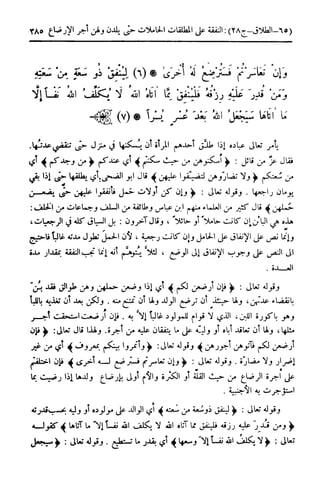 (٦٥-الطلاق-ج٢٨): النفقة على المطلقات الحاملات حتى يلدن ولهن أجر الإرضاع ٣٨٥
وَإِن تَعَاسَرْتُمْ فَسَتُرْضِعُ لَهُ أُخْرَىٰ ﴿٦﴾ لِيُنفِقْ ذُو سَعَةٍ مِّن سَعَتِهِ
وَمَن قُدِرَ عَلَيْهِ رِزْقُهُ فَلْيُنفِقْ مِمَّا آتَاهُ اللَّهُ لَا يُكَلِّفُ اللَّهُ نَفْسًا إِلَّا
مَا آتَاهَا سَيَجْعَلُ اللَّهُ بَعْدَ عُسْرٍ يُسْرًا ﴿٧﴾
يأمر تعالى عباده إذا طلق أحدهم المرأة أن يسكنها في منزل حتى تنقضي عدتها،
فقال عز من قائل : ﴿ أسكنوهن من حيث سكنتم ﴾ أي عندكم ﴿ من وجدكم ﴾ أي
من سعتكم ﴿ ولا تضاروهن لتضيقوا عليهن ﴾ قال أبو الضحى: أي يطلقها حتى إذا بقي
يومان راجعها . وقوله تعالى : ﴿ وإن كن أولات حمل فأنفقوا عليهن حتى يضعن
حملهن ﴾ قال كثير من العلماء منهم ابن عباس وطائفة من السلف وجماعات من الخلف :
هذه هي البائن إن كانت حاملاً أو حائلاً ، وقال آخرون : بل السياق كله في الرجعيات،
وإنما نص على الإنفاق على الحامل وإن كانت رجعية ، لأن الحمل تطول مدته غالباً فاحتيج
إلى النص على وجوب الإنفاق إلى الوضع ، لئلا يتوهم أنه إنما تجب النفقة بمقدار مدة
العدة .
وقوله تعالى : ﴿ فإن أرضعن لكم ﴾ أي إذا وضعن حملهن وهن طوالق فقد بِنَّ
بانقضاء عدتهن، ولها حينئذ أن ترضع الولد ولها أن تمتنع منه . ولكن بعد أن تغذيه باللبأ
وهو باكورة اللبن، الذي لا قوام للمولود غالباً إلا به . فإن أرضعت استحقت أجر
مثلها، ولها أن تعاقد أباه أو وليه على ما يتفقان عليه من أجرة. ولهذا قال تعالى: ﴿ فإن
أرضعن لكم فآتوهن أجورهن ﴾ وقوله تعالى: ﴿ وأتمروا بينكم بمعروف ﴾ أي من غير
إضرار ولا مضارة . وقوله تعالى : ﴿ وإن تعاسرتم فسترضع له أخرى ﴾ فإن اختلفتم
على أجرة الرضاع من حيث القلة أو الكثرة والأم أولى بإرضاع ولدها إذا رضيت بما
استؤجرت به الأجنبية .
وقوله تعالى : ﴿ لينفق ذو سعة من سعته ﴾ أي الوالد على مولوده أو وليه بحسب قدرته
﴿ ومن قدر عليه رزقه فلينفق مما آتاه الله لا يكلف الله نفساً إلا ما آتاها ﴾ كقوله
تعالى : ﴿ لا يكلف الله نفساً إلا وسعها ﴾ أي بقدر ما تستطيع . وقوله تعالى : ﴿ سيجعل